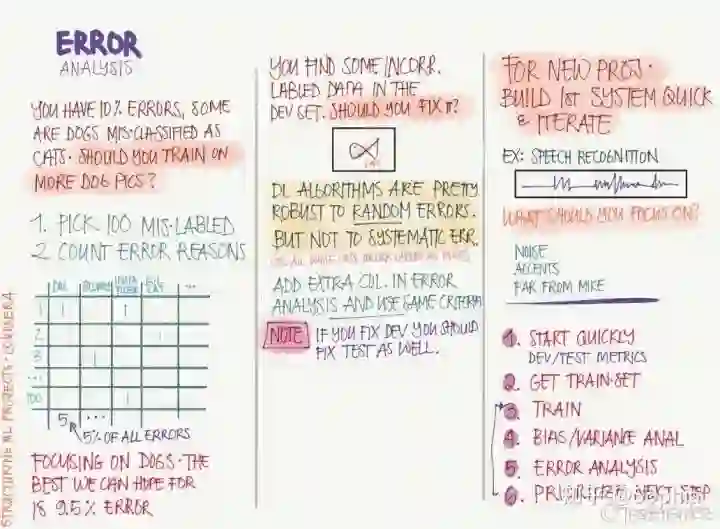 ERROR
ANALYSIS
YOU HAVE 10% ERRORS, SOME
ARE DOGS MIS-CLASSIFIED AS
CATS. SHOULD YOU TRAIN ON
MORE DOG PICS?
1. PICK 100 MIS-LABLED
2 COUNT ERROR REASONS
DOG
...
1 1 1
2 1
3 1
...
100 1
5 ...
5% OF ALL ERRORS
FOCUSING ON DOGS. THE
BEST WE CAN HOPE FOR
IS 9.5% ERROR
STRUCTURING ML PROJECTS - COURSERA
YOU FIND SOME INCORR.
LABLED DATA IN THE
DEV SET. SHOULD YOU FIX IT?
DL ALGORITHMS ARE PRETTY
ROBUST TO RANDOM ERRORS.
BUT NOT TO SYSTEMATIC ERR.
ADD EXTRA COL. IN ERROR
ANALYSIS AND USE SAME CRITERIA
NOTE IF YOU FIX DEV YOU SHOULD
FIX TEST AS WELL.
FOR NEW PROJ.
BUILD 1st SYSTEM QUICK
& ITERATE
EX: SPEECH RECOGNITION
WHAT SHOULD YOU FOCUS ON?
NOISE
ACCENTS
FAR FROM MIKE
1. START QUICKLY
DEV/TEST METRICS
2. GET TRAIN-SET
3. TRAIN
4. BIAS/VARIANCE ANAL
5. ERROR ANALYSIS
6. PRIORITIZE NEXT STEP